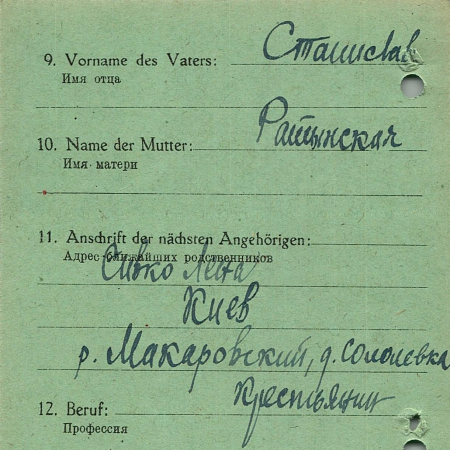 9. Vorname des Vaters: Станислав
Имя отца
10. Name der Mutter: Ратынская
Имя матери
11. Anschrift der nächsten Angehörigen:
Адрес ближайших родственников
Сивко Лена
Киев
р. Макаровский, д. Соломевка
Крестьянин
12. Beruf:
Профессия